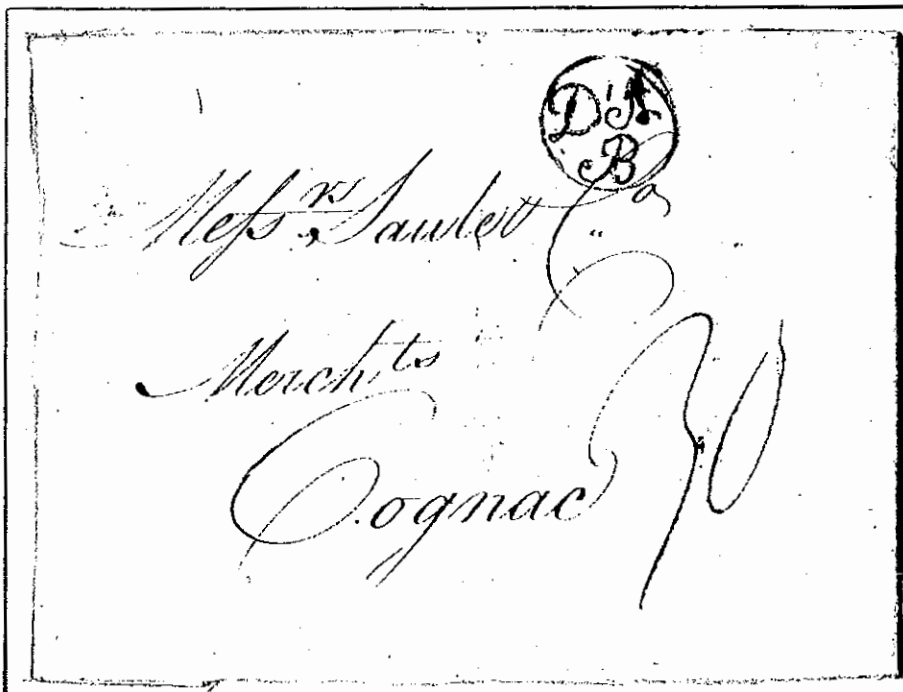 D'A
B
Messrs Saulet Co
Merchts
Cognac
30